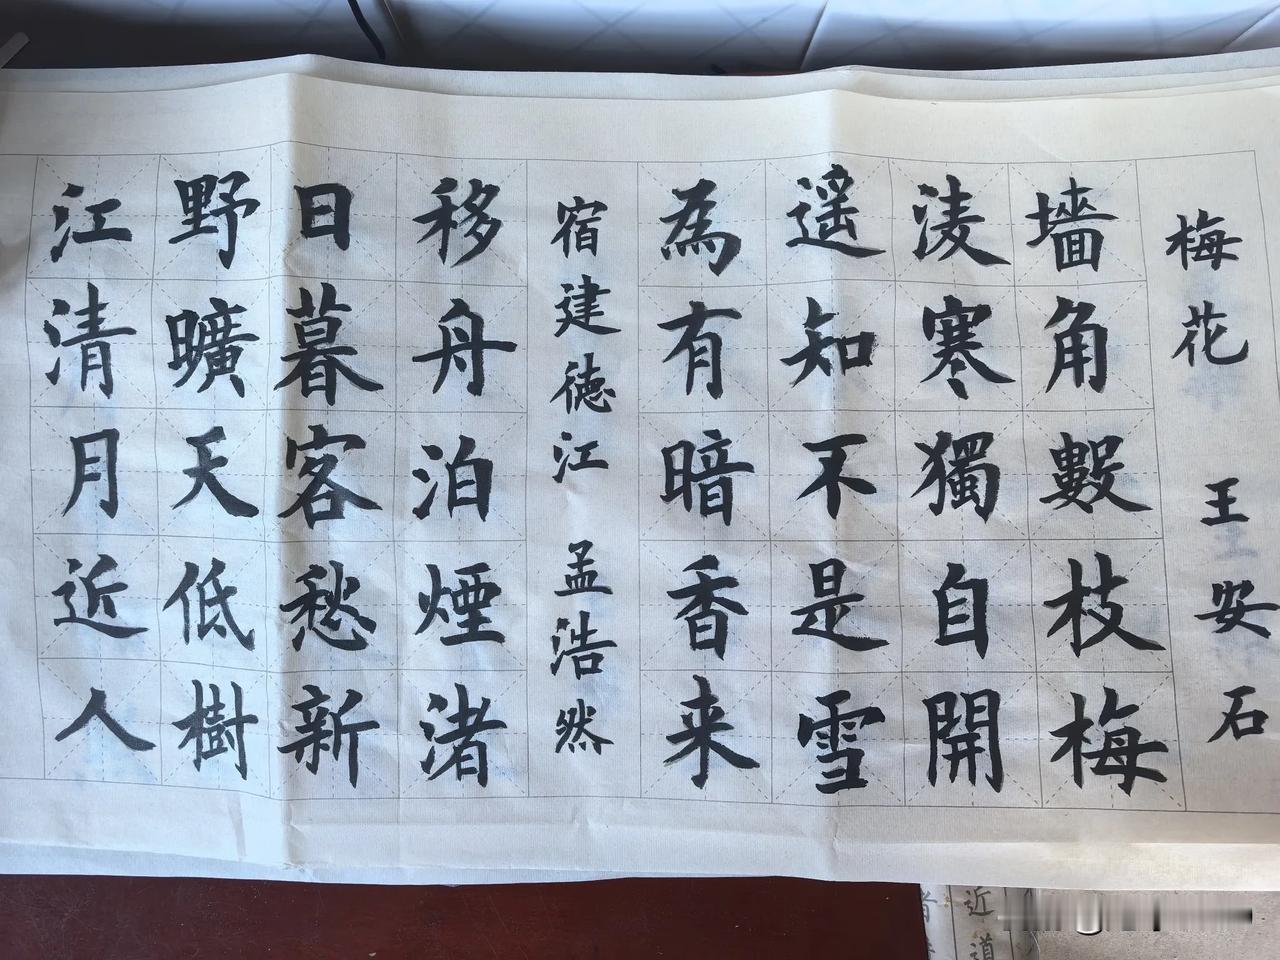 梅花 王安石
墻角數枝梅
淩寒獨自開
遥知不是雪
為有暗香来
宿建德江 孟浩然
移舟泊煙渚
日暮客愁新
野曠天低樹
江清月近人
近
道